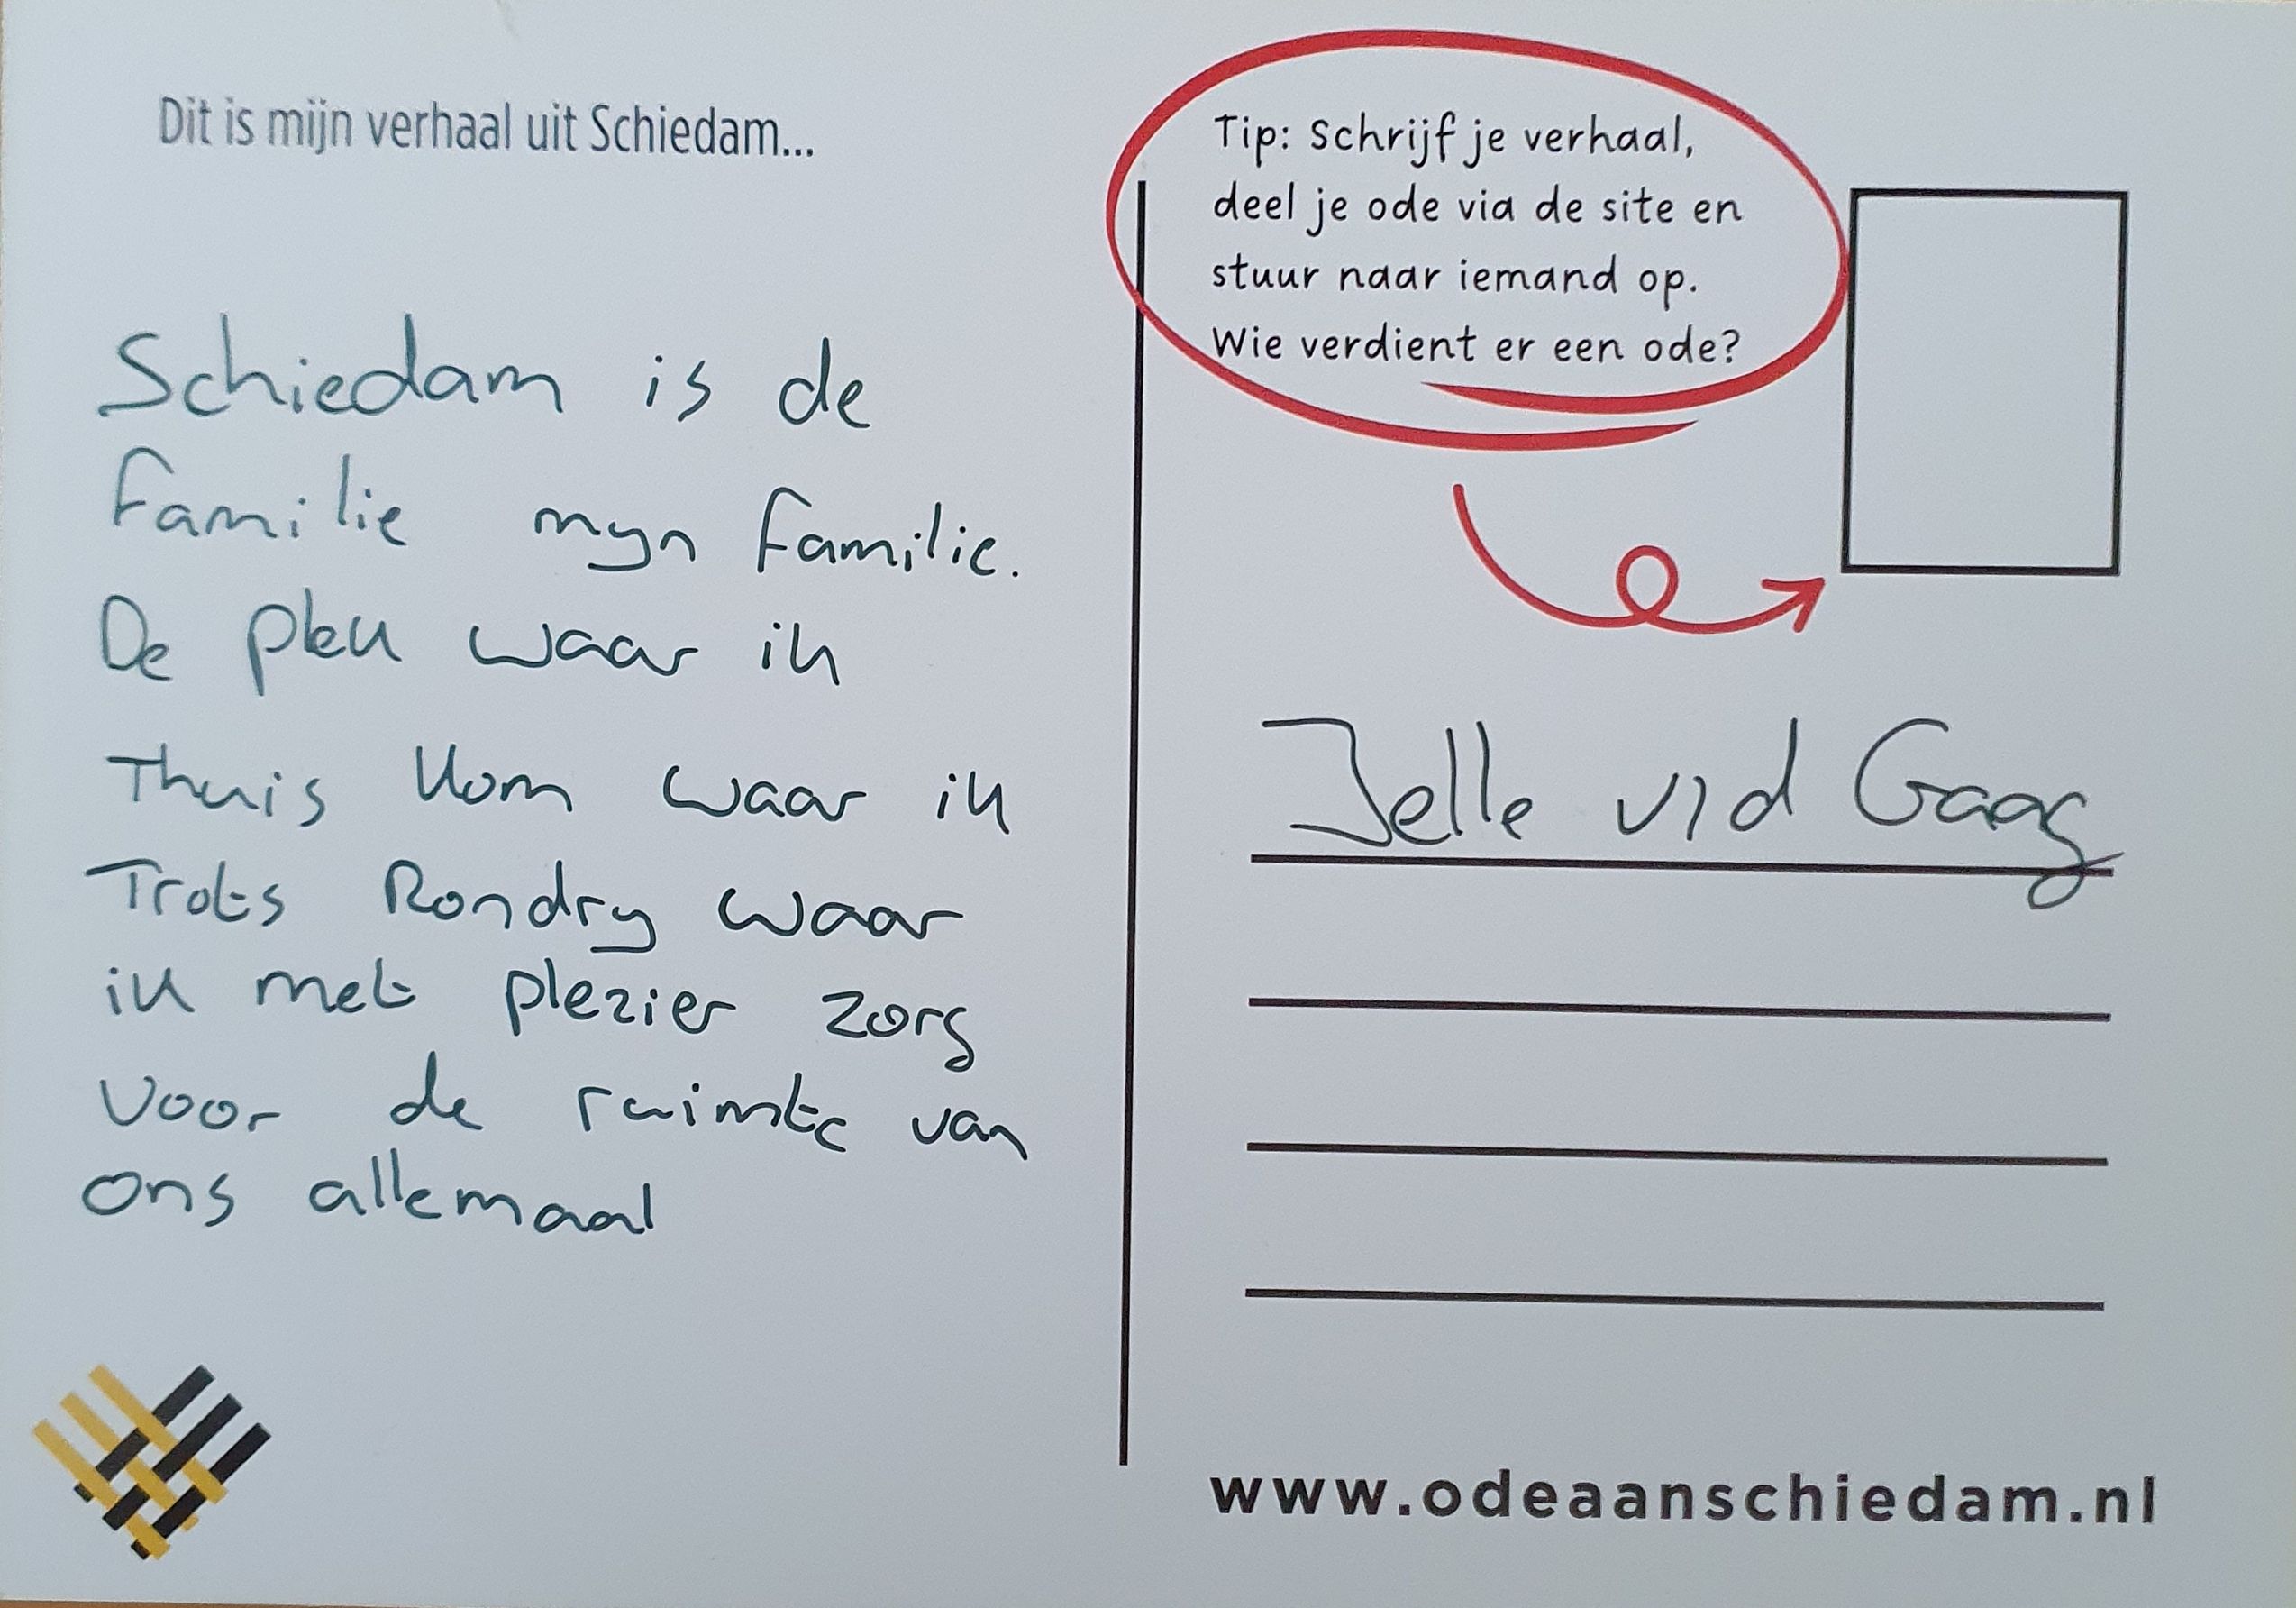 Dit is mijn verhaal uit Schiedam...
Schiedam is de
Familie mijn Familie.
De plek waar ik
Thuis kom waar ik
Trots Rondrij waar
ik met plezier zorg
voor de ruimte van
ons allemaal
Tip: Schrijf je verhaal,
deel je ode via de site en
stuur naar iemand op.
Wie verdient er een ode?
Jelle v/d Gaag
www.odeaanschiedam.nl